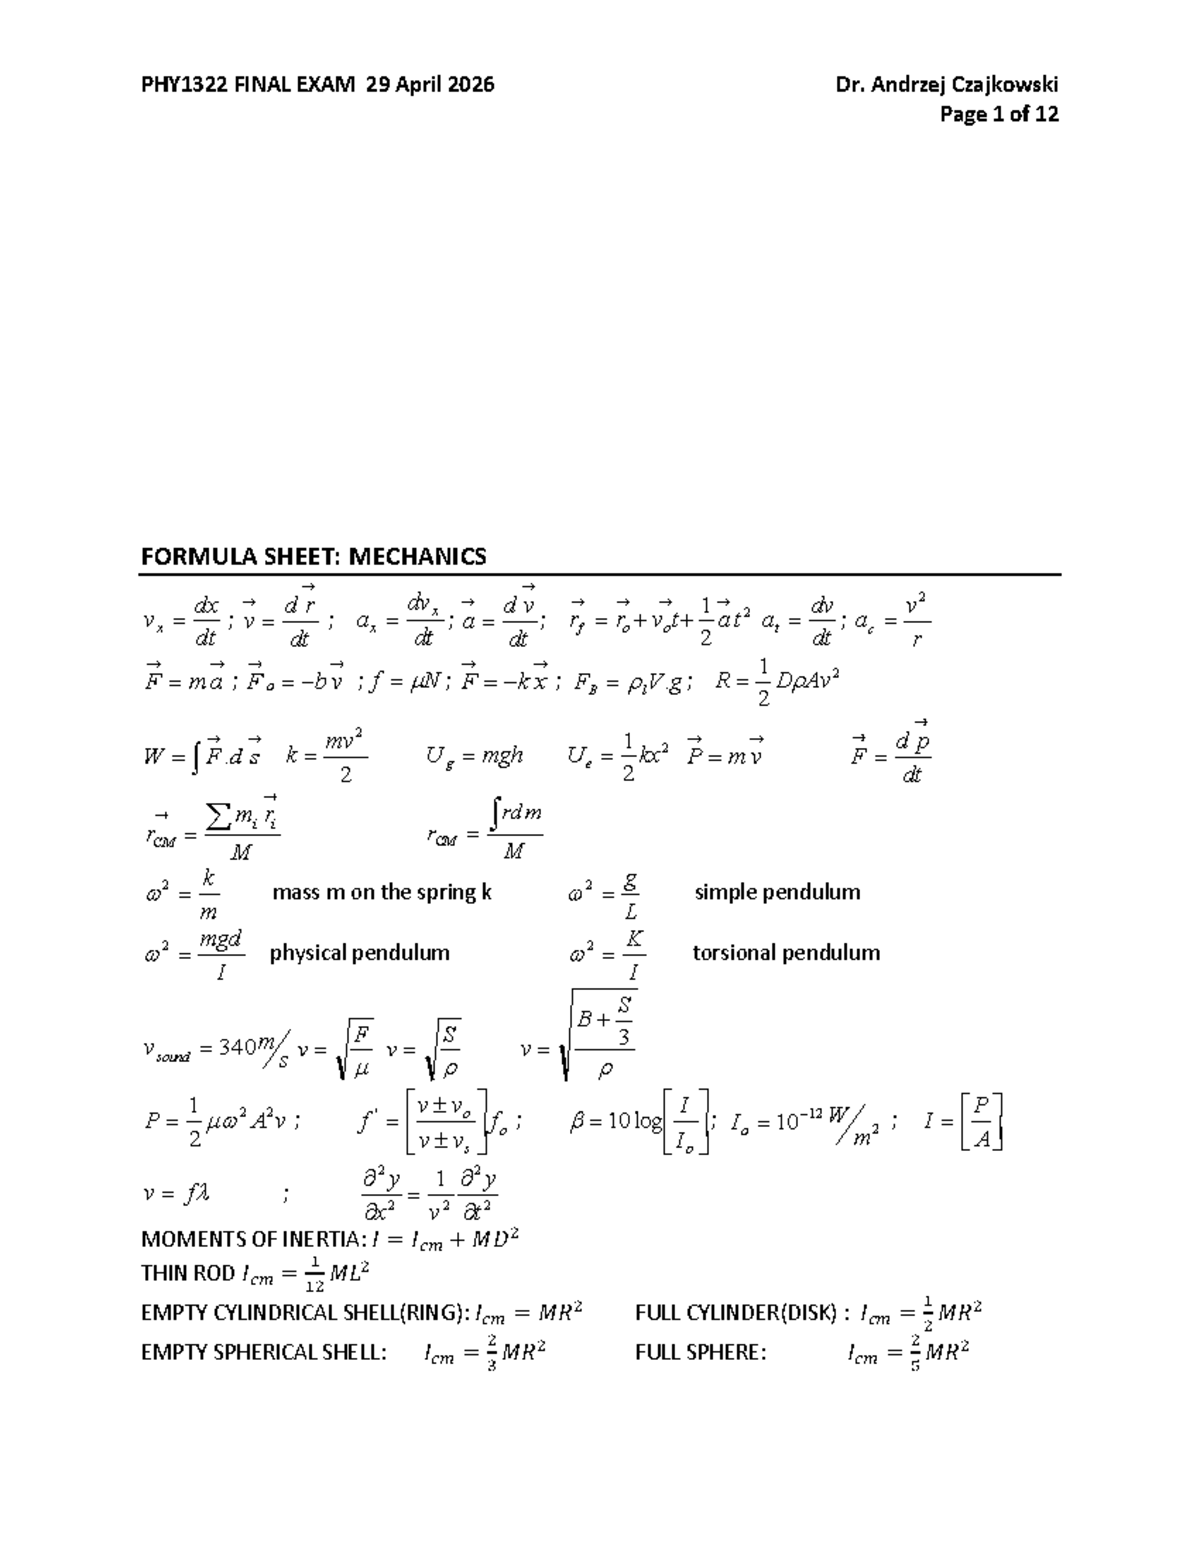 PHY1322 FINAL EXAM 29 April 2026 Dr. Andrzej Czajkowski
Page 1 of 12
FORMULA SHEET: MECHANICS
v_x = dx/dt ; v⃗ = d r⃗/dt ; a_x = dv_x/dt ; a⃗ = d v⃗/dt ; r⃗_f = r⃗_o + v⃗_o t + 1/2 a⃗ t² a_t = dv/dt ; a_c = v²/r
F⃗ = m a⃗ ; F⃗_o = −b v⃗ ; f = μN ; F⃗ = −k x⃗ ; F_B = ρ_l V.g ; R = 1/2 DρAv²
W = ∫ F⃗ .d s⃗ k = mv²/2 U_g = mgh U_e = 1/2 kx² P⃗ = m v⃗ F⃗ = d p⃗/dt
r⃗_CM = ∑ m_i r⃗_i / M r_CM = ∫ rdm / M
ω² = k/m mass m on the spring k ω² = g/L simple pendulum
ω² = mgd/I physical pendulum ω² = K/I torsional pendulum
v_sound = 340 m/s v = √(F/μ) v = √(S/ρ) v = √((B + S/3)/ρ)
P = 1/2 μω²A²v ; f' = [(v ± v_o)/(v ± v_s)] f_o ; β = 10 log[I/I_o] ; I_o = 10⁻¹² W/m² ; I = [P/A]
v = fλ ; ∂²y/∂x² = 1/v² ∂²y/∂t²
MOMENTS OF INERTIA: I = I_cm + MD²
THIN ROD I_cm = 1/12 ML²
EMPTY CYLINDRICAL SHELL(RING): I_cm = MR² FULL CYLINDER(DISK) : I_cm = 1/2 MR²
EMPTY SPHERICAL SHELL: I_cm = 2/3 MR² FULL SPHERE: I_cm = 2/5 MR²